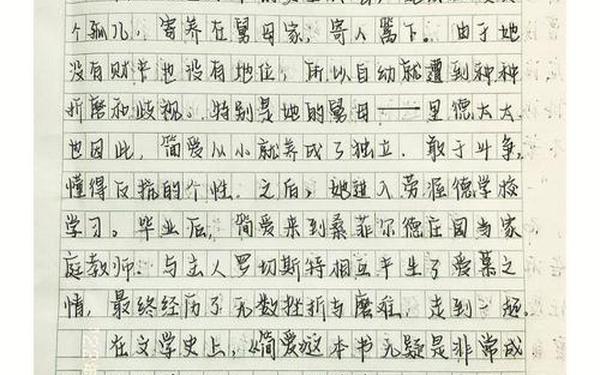 个孤儿，寄养在舅母家，寄人篱下。由于她
没有财产也没有地位，所以自幼就遭到种种
折磨和歧视。特别是她的舅母——里德太太。
也因此，简爱从小就养成了独立、敢于斗争，
懂得反抗的个性。之后，她进入劳渥德学校
学习。毕业后，简爱来到桑菲尔德庄园当家
庭教师。与主人罗切斯特相互产生了爱慕之
情，最终经历了无数挫折与磨难，走到一起。
在文学史上，《简爱》这本书无疑是非常成